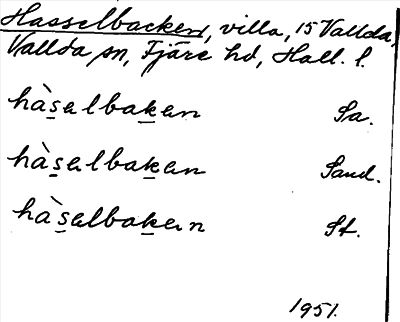 Hasselbacken, villa, 15 Vallda,
Vallda sn, Fjäre hd, Hall. l.
hàs̱albaḵan Sa.
hàs̱albaḵan Sand.
hàs̱albaḵan St.
1951.